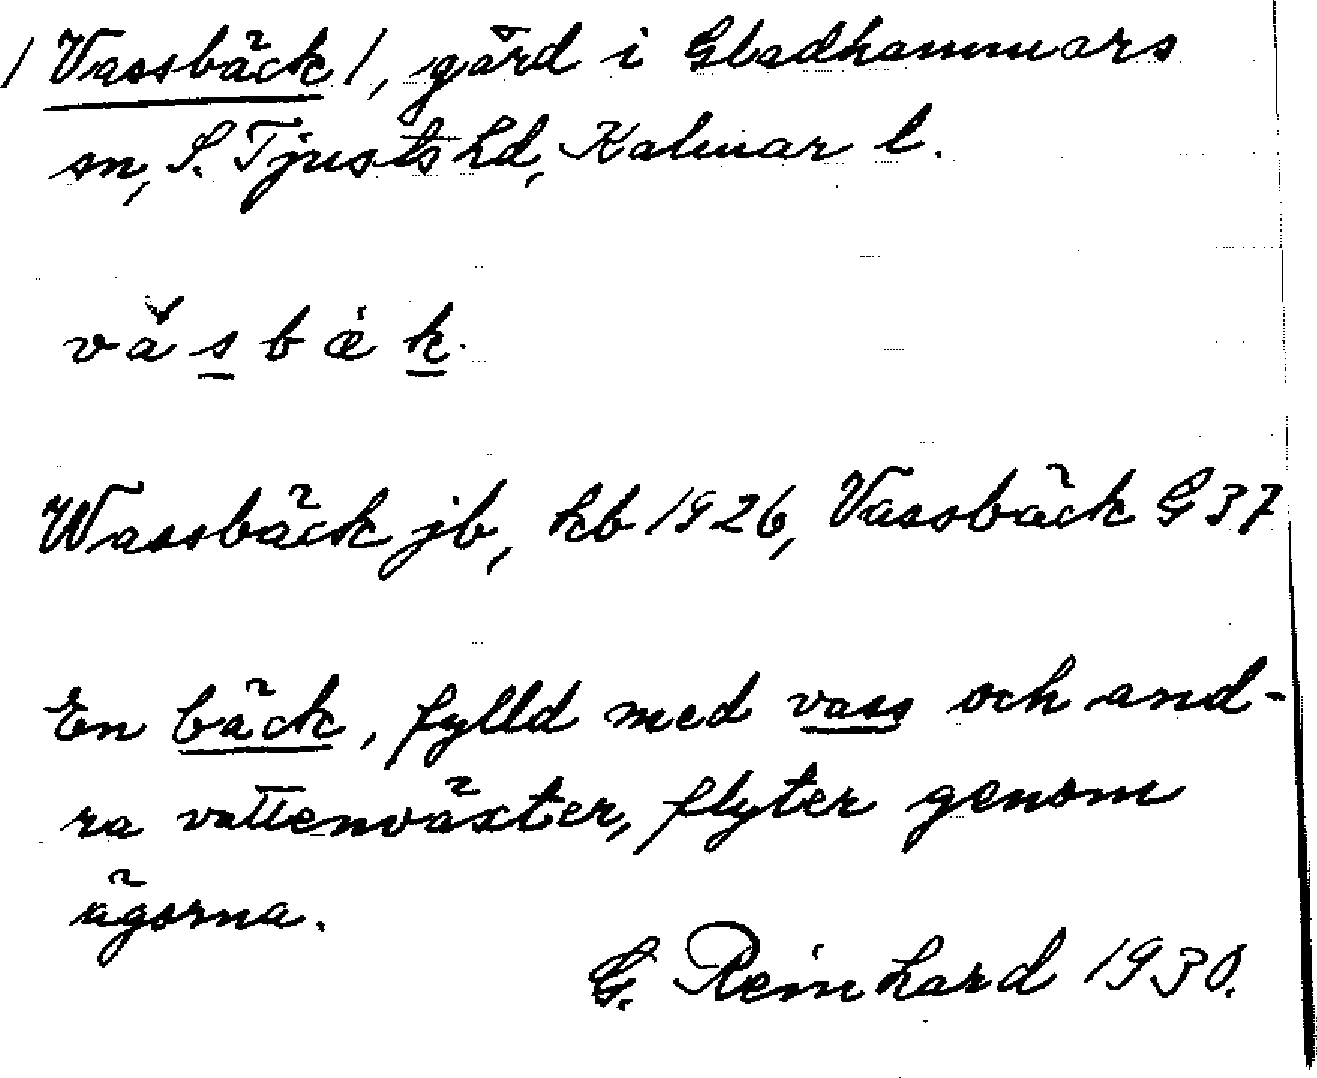 /Vassbäck/, gård i Gladhammars
sn, S. Tjusts hd, Kalmar l.
văsbæ̇k.
Wassbäck jb, kb 1926, Vassbäck G 37
En bäck, fylld med vass och and-
ra vattenväxter, flyter genom
ägorna.
G. Reinhard 1930.